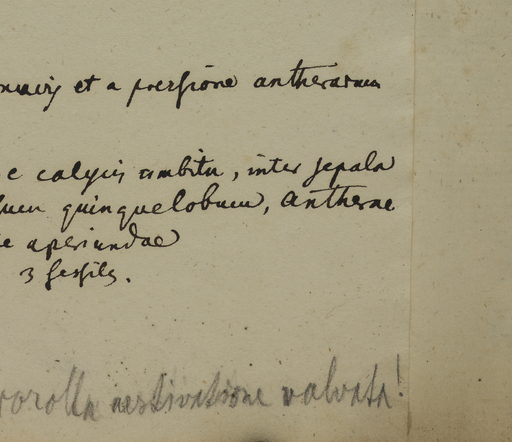 et a pressione antherarum
e calycis ambitu, inter sepala
quinquelobum, Antherae
aperiundae
3 sessilis.
corolla aestivatione valvata!